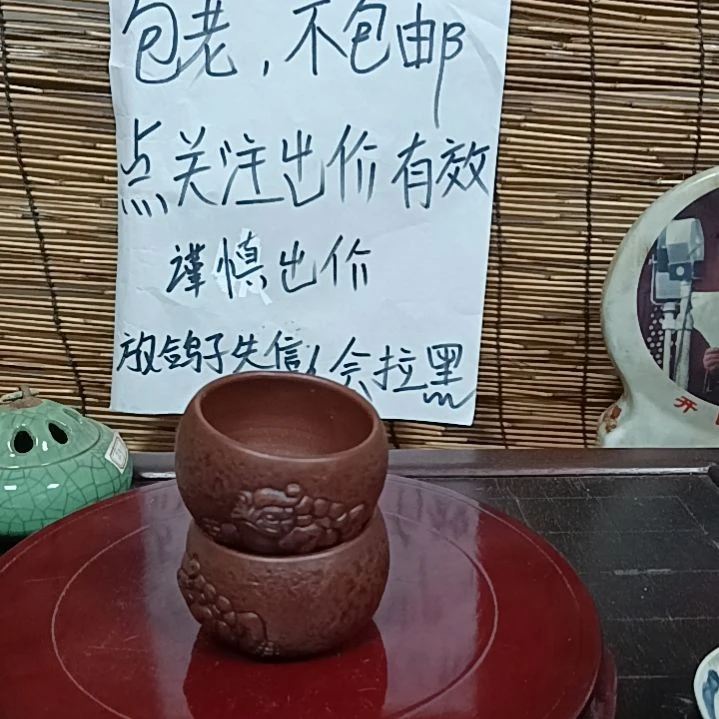 包老，不包邮
点关注出价有效
谨慎出价
放鸽子失信人会拉黑
开